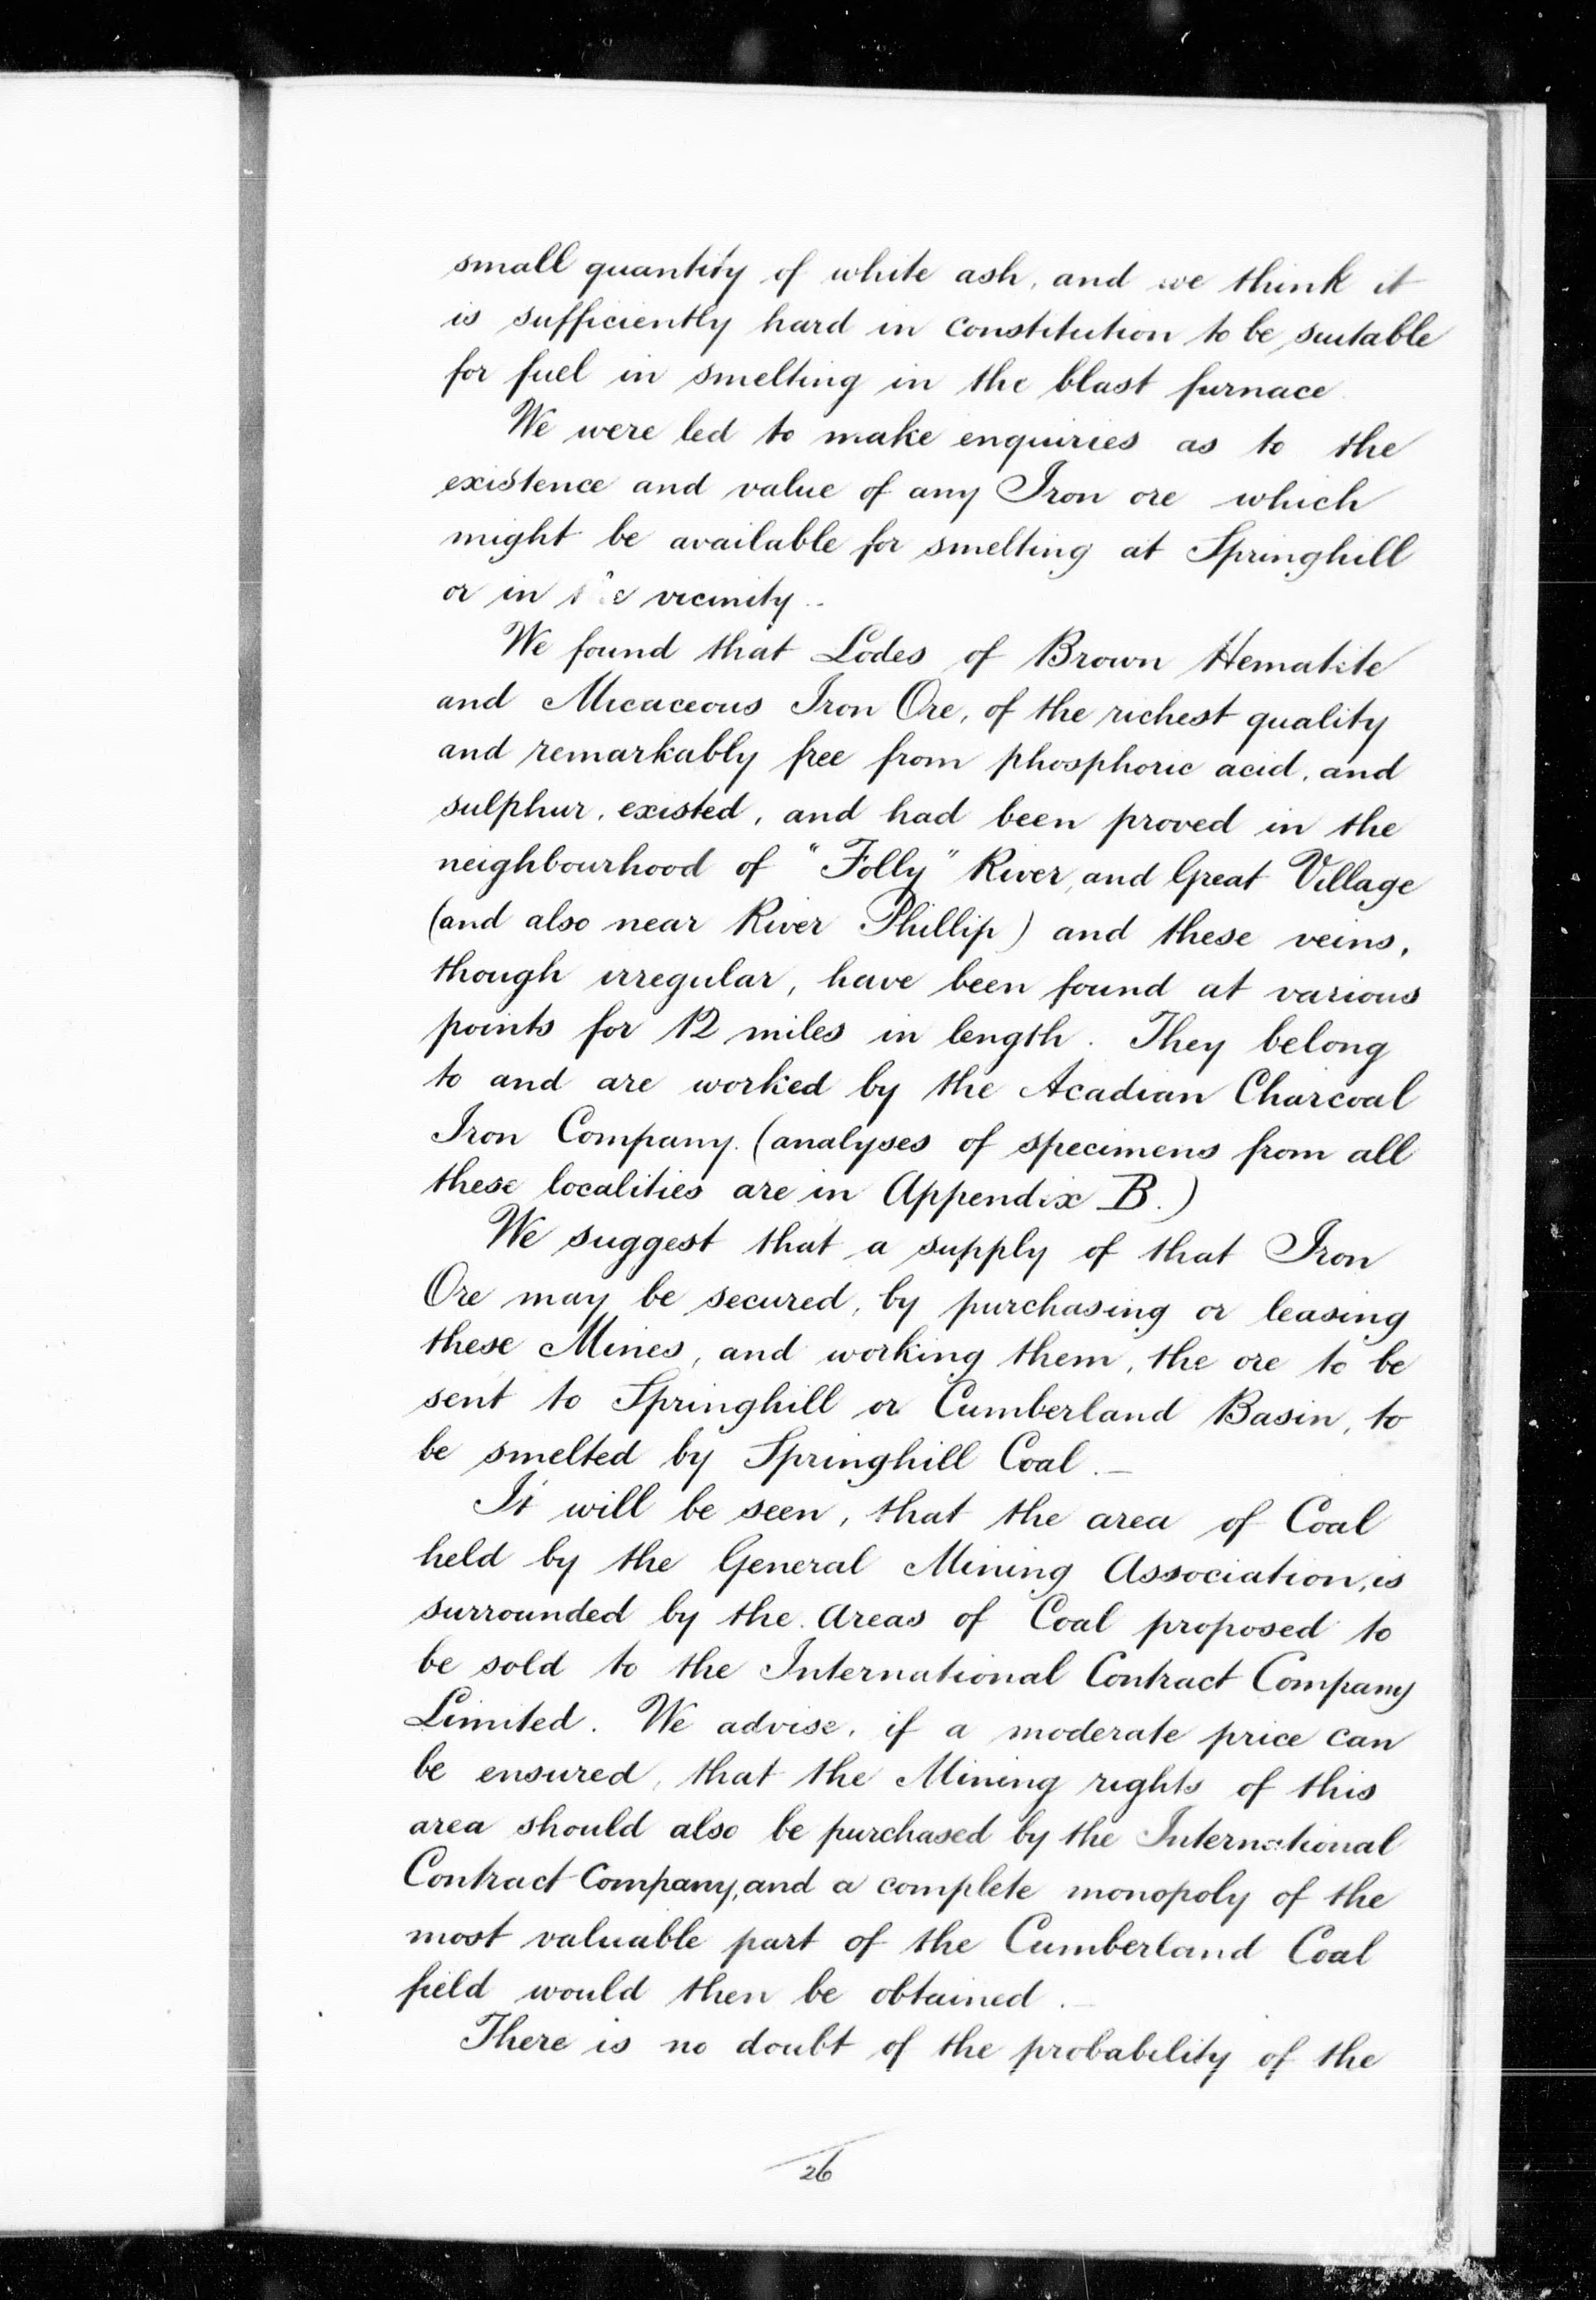 small quantity of white ash, and we think it
is sufficiently hard in constitution to be suitable
for fuel in smelting in the blast furnace.
We were led to make enquiries as to the
existence and value of any Iron ore which
might be available for smelting at Springhill
or in the vicinity..
We found that Lodes of Brown Hematite
and Micaceous Iron Ore, of the richest quality
and remarkably free from phosphoric acid, and
sulphur, existed, and had been proved in the
neighbourhood of "Folly" River, and Great Village
(and also near River Phillip) and these veins,
though irregular, have been found at various
points for 12 miles in length. They belong
to and are worked by the Acadian Charcoal
Iron Company. (analyses of specimens from all
these localities are in Appendix B.)
We suggest that a supply of that Iron
Ore may be secured, by purchasing or leasing
these Mines, and working them, the ore to be
sent to Springhill or Cumberland Basin, to
be smelted by Springhill Coal. —
It will be seen, that the area of Coal
held by the General Mining Association, is
surrounded by the Areas of Coal proposed to
be sold to the International Contract Company
Limited. We advise, if a moderate price can
be ensured, that the Mining rights of this
area should also be purchased by the International
Contract Company, and a complete monopoly of the
most valuable part of the Cumberland Coal
field would then be obtained. —
There is no doubt of the probability of the
26